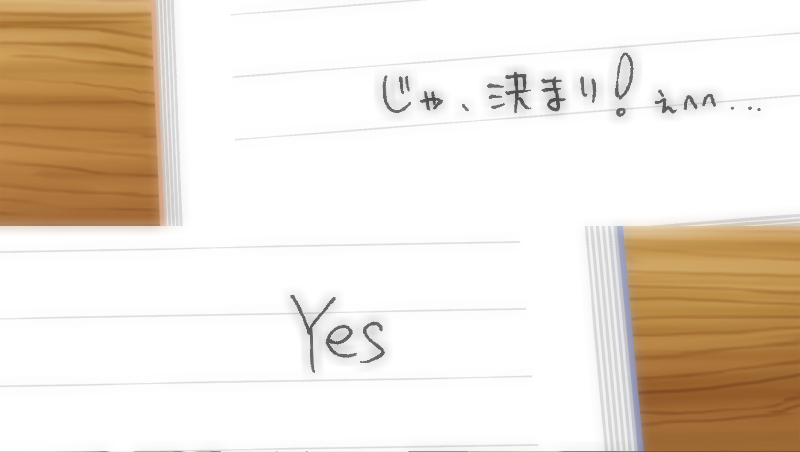 じゃ、決まり! えへへ...
Yes